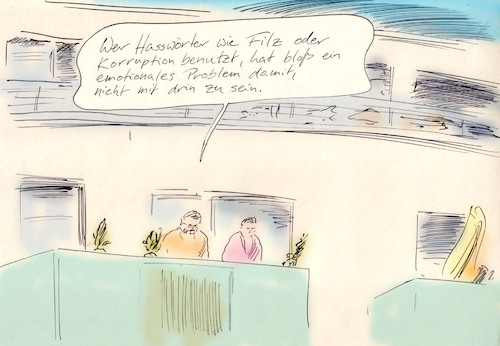 Wer Hasswörter wie Filz oder
Korruption benutzt, hat bloß ein
emotionales Problem damit,
nicht mit drin zu sein.